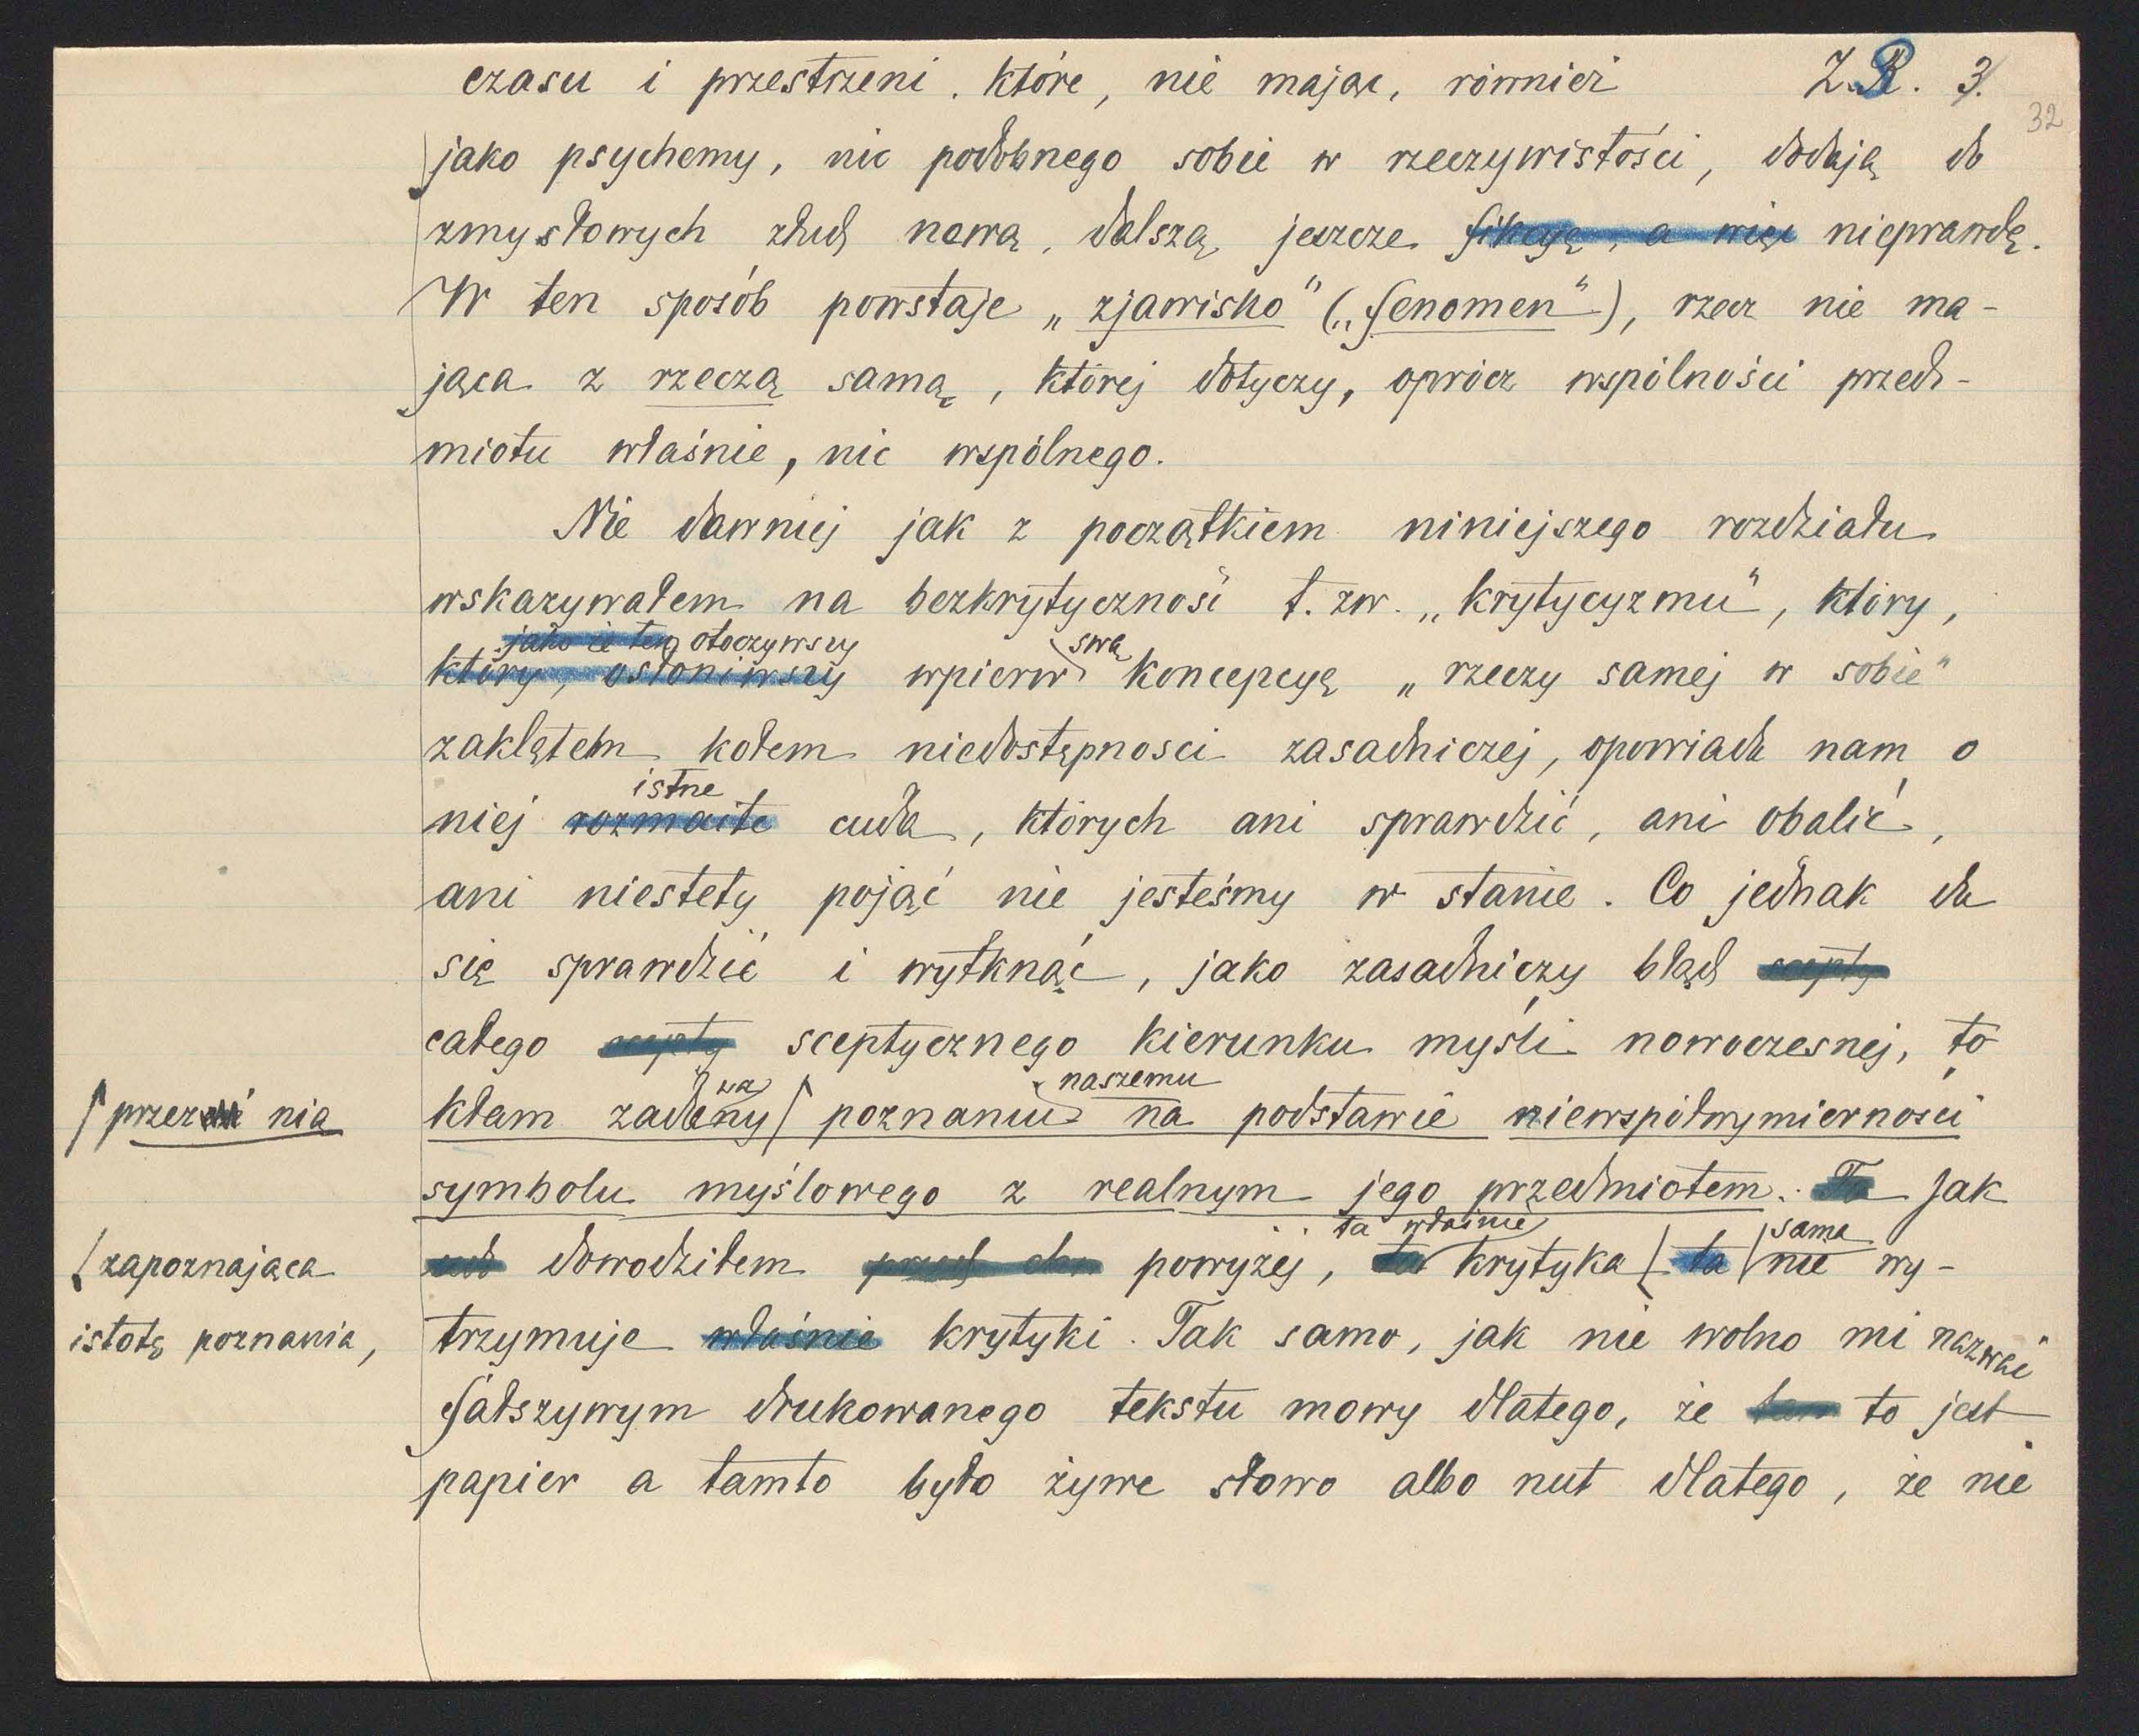 czasu i przestrzeni. które, nie mając, również Z.R. 3.
32
jako psychemy, nic podobnego sobie w rzeczywistości, dodają do
zmysłowych złud nową, dalszą jeszcze fikcyę, a więc nieprawdę.
W ten sposób powstaje „zjawisko" („fenomen"), rzecz nie ma-
jąca z rzeczą samą, której dotyczy, oprócz wspólności przed-
miotu właśnie, nic wspólnego.
Nie dawniej jak z początkiem niniejszego rozdziału
wskazywałem na bezkrytyczność t. zw. „krytycyzmu", który,
jako że ten otoczywszy swą
który, osłoniwszy wpierw koncepcyę „rzeczy samej w sobie"
zaklętem kołem niedostępności zasadniczej, opowiada nam o
istne
niej rozmaite cuda, których ani sprawdzić, ani obalić,
ani niestety pojąć nie jesteśmy w stanie. Co jednak da
się sprawdzić i wytknąć, jako zasadniczy błąd scepty
całego scepty sceptycznego kierunku myśli nowoczesnej, to
wa naszemu
przez nią
kłam zadany poznaniu na podstawie niewspółwymierności
symbolu myślowego z realnym jego przedmiotem. Ta Jak
ta właśnie sama
zapoznająca
dowodziłem powyżej, ta krytyka ta nie wy-
istotę poznania,
trzymuje właśnie krytyki. Tak samo, jak nie wolno mi nazwać
fałszywym drukowanego tekstu mowy dlatego, że tam to jest
papier a tamto było żywe słowo albo nut dlatego, że nie